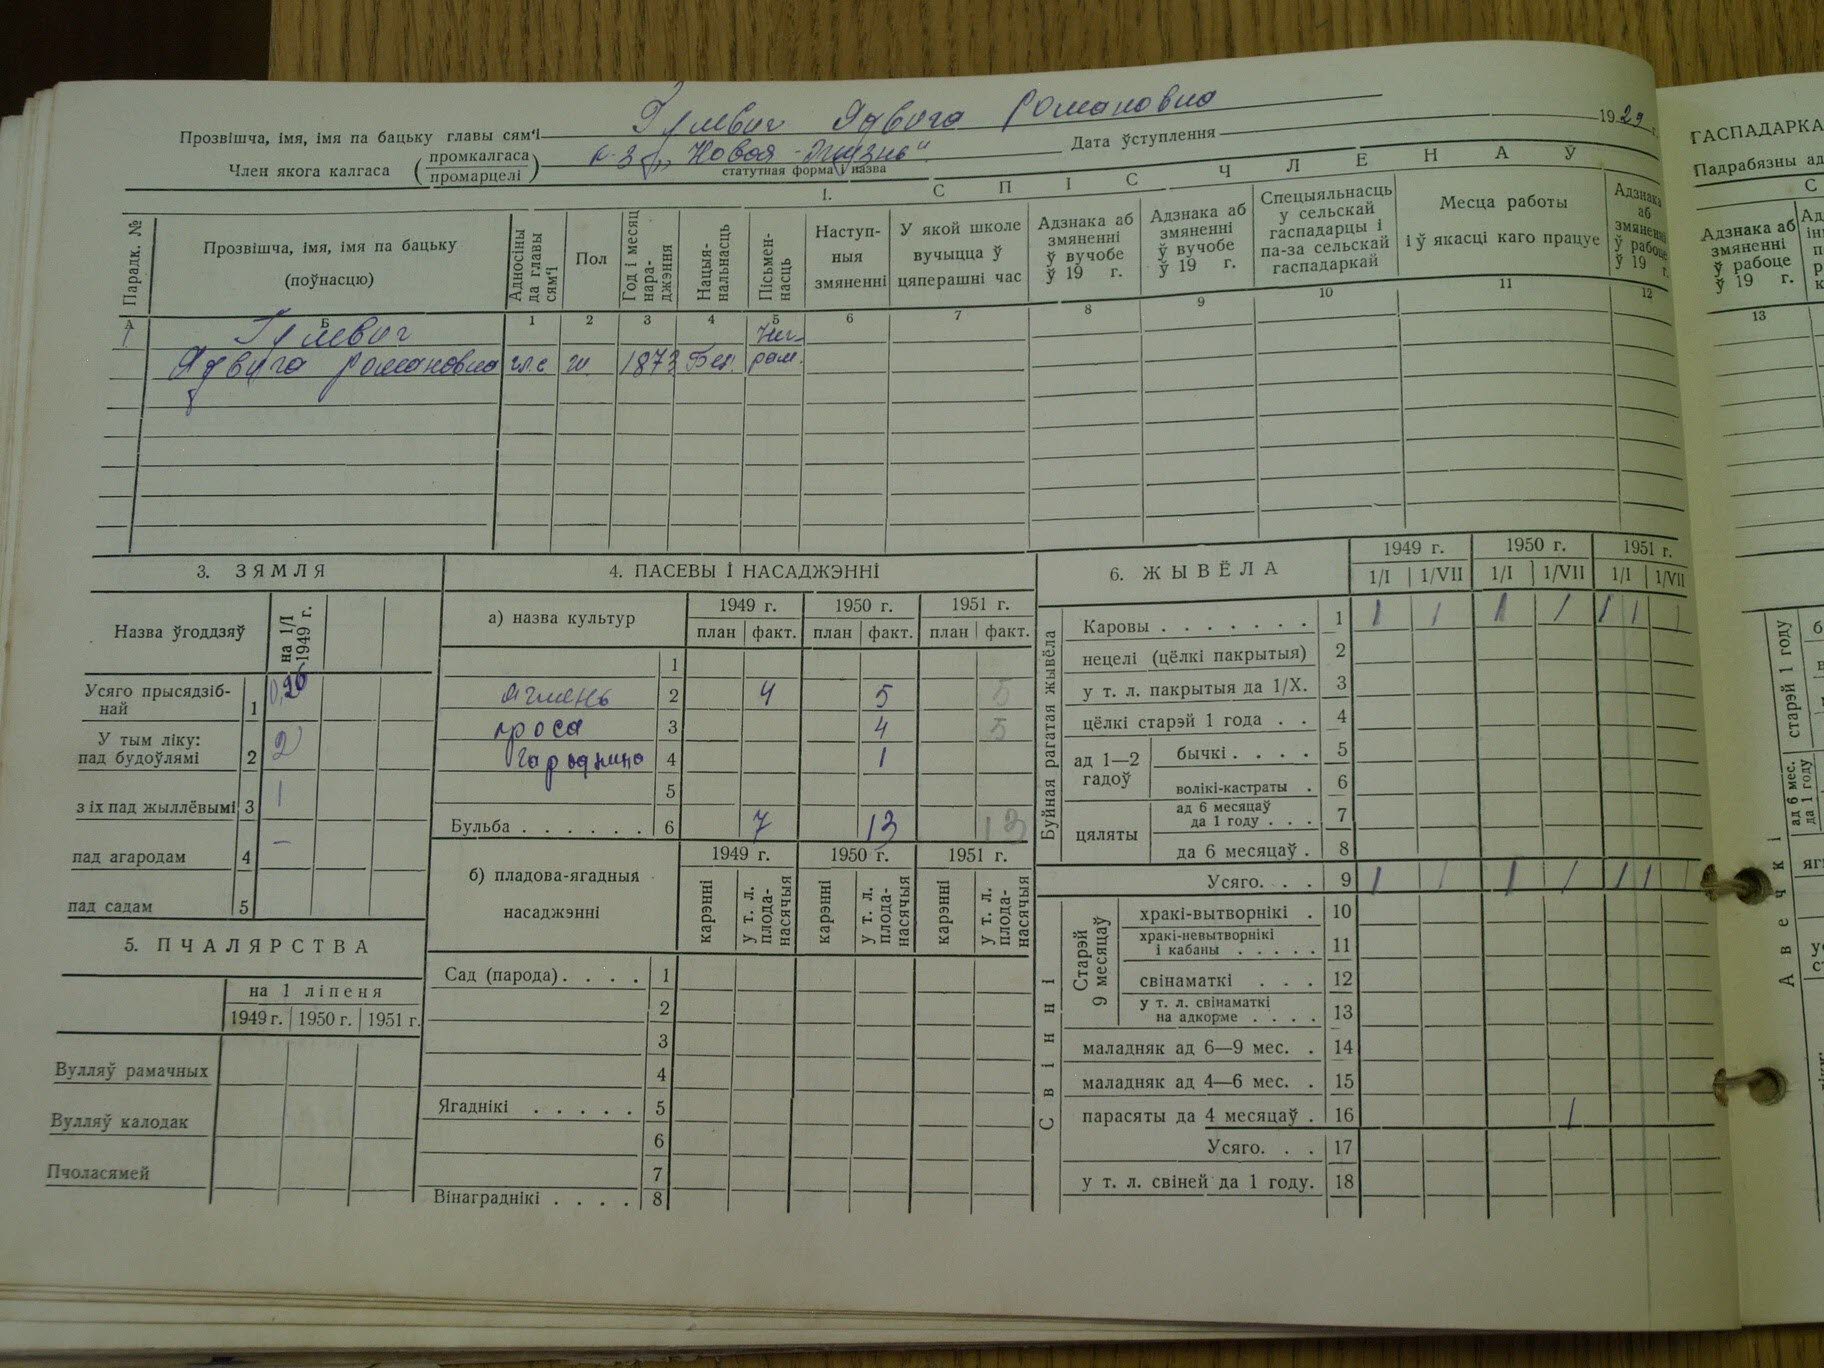 Прозвішча, імя, імя па бацьку главы сям'і Ядвига Романовна
Член якога калгаса (промкалгаса промарцелі) к-з „Новая жизнь“ Дата ўступлення 1929 г.
статутная форма і назва
1. СПІС ЧЛЕНАЎ
Парадк. №
Прозвішча, імя, імя па бацьку (поўнасцю)
Адносіны да главы сям'і
Пол
Год і месяц нараджэння
Нацыянальнасць
Пісьменнасць
Наступныя змяненні
У якой школе вучыцца ў цяперашні час
Адзнака аб змяненні ў вучобе ў 19 г.
Адзнака аб змяненні ў вучобе ў 19 г.
Спецыяльнасць у сельскай гаспадарцы і па-за сельскай гаспадаркай
Месца работы і ў якасці каго працуе
Адзнака аб змяненні ў рабоце ў 19 г.
А Б 1 2 3 4 5 6 7 8 9 10 11 12
1
Ядвига Романовна гл.с ж 1873 Бел.
3. ЗЯМЛЯ
Назва ўгоддзяў на 1/I 1949 г.
Усяго прысядзібнай 1
У тым ліку:
пад будоўлямі 2 2
з іх пад жыллёвымі 3 1
пад агародам 4 —
пад садам 5
5. ПЧАЛЯРСТВА
на 1 ліпеня
1949 г. 1950 г. 1951 г.
Вулляў рамачных
Вулляў калодак
Пчоласямей
4. ПАСЕВЫ І НАСАДЖЭННІ
а) назва культур 1949 г. 1950 г. 1951 г.
план факт. план факт. план факт.
1
ячмень 2 4 5 5
проса 3 4 5
гародніна 4 1
5
Бульба . . . . . . 6 7 13 13
б) пладова-ягадныя насаджэнні 1949 г. 1950 г. 1951 г.
карэнні у т. л. пладанасячыя карэнні у т. л. пладанасячыя карэнні у т. л. пладанасячыя
Сад (парода) . . . . 1
2
3
4
Ягаднікі . . . . . 5
6
7
Вінаграднікі . . . . 8
6. ЖЫВЁЛА 1949 г. 1950 г. 1951 г.
1/I 1/VII 1/I 1/VII 1/I 1/VII
Буйная рагатая жывёла
Каровы . . . . . . . 1 1 1 1 1 1 1 1
нецелі (цёлкі пакрытыя) 2
у т. л. пакрытыя да 1/X. 3
цёлкі старэй 1 года . . 4
ад 1—2 гадоў
бычкі . . . . 5
волікі-кастраты . 6
цяляты
ад 6 месяцаў да 1 году . . . 7
да 6 месяцаў . 8
Усяго. . . 9 1 1 1 1 1 1 1
Свінні
Старэй 9 месяцаў
хракі-вытворнікі . 10
хракі-невытворнікі і кабаны . . . . . 11
свінаматкі . . . 12
у т. л. свінаматкі на адкорме . . . . 13
маладняк ад 6—9 мес. . 14
маладняк ад 4—6 мес. . 15
парасяты да 4 месяцаў . 16 1
Усяго. . . 17
у т. л. свіней да 1 году. 18
ГАСПАДАРКА
Падрабязны
С
Адзнака аб змяненні ў рабоце ў 19 г.
13
старэй 1 году
ад 6 мес. да 1 году
Авечкі